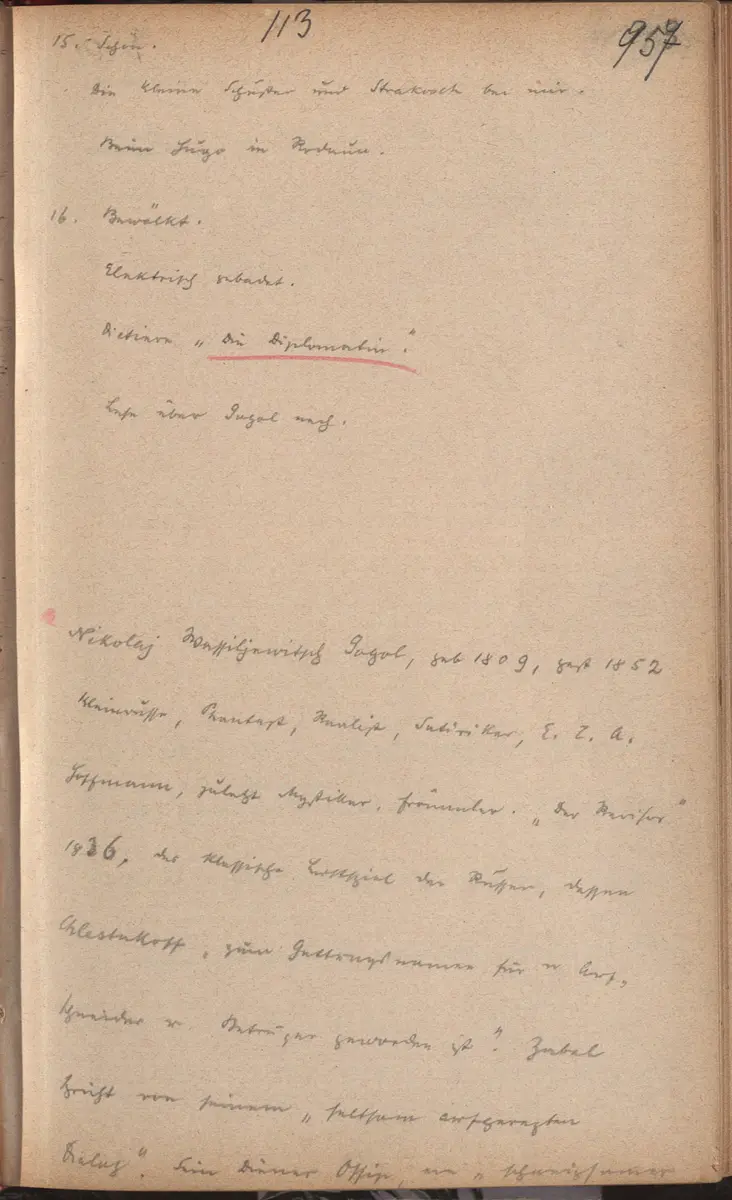 113
957
15. Schön.
Die kleine Schuster und Strakosch bei mir.
Beim Hugo in Rodaun.
16. Bewölkt.
Elektrisch gebadet.
Dictiere „Die Diplomatin".
Lese über Gogol nach.
Nikolaj Wassiljewitsch Gogol, geb 1809, gest 1852
Kleinrusse, Phantast, Realist, Satiriker, E. T. A.
Hoffmann, zuletzt Mystiker, Frömmler. „Der Revisor"
1836, das klassische Lustspiel der Russen, dessen
Chlestakoff „zum Gattungsnamen für Auf-
schneider u Betrüger geworden ist". Zabel
spricht von seinem „seltsam aufgeregten
Dialog". Sein Diener Ossip, ein „schweigsamer